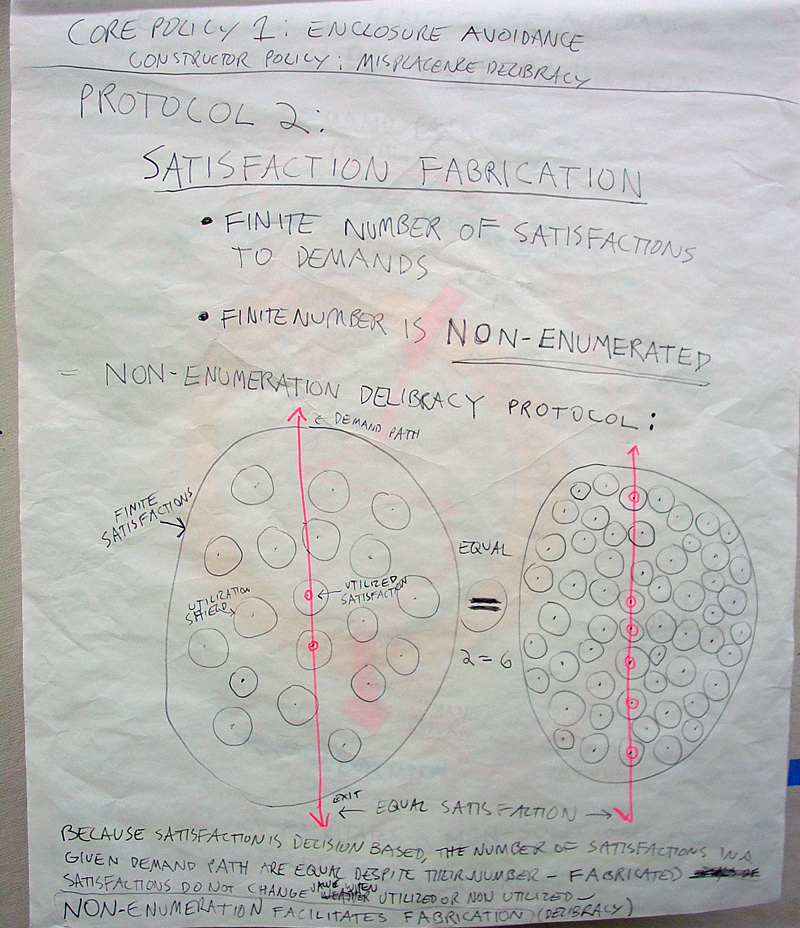 CORE POLICY 1: ENCLOSURE AVOIDANCE
CONSTRUCTOR POLICY: MISPLACENRE DELIBRACY
PROTOCOL 2:
SATISFACTION FABRICATION
• FINITE NUMBER OF SATISFACTIONS
TO DEMANDS
• FINITE NUMBER IS NON-ENUMERATED
- NON-ENUMERATION DELIBRACY PROTOCOL:
← DEMAND PATH
FINITE
SATISFACTIONS
UTILIZED
SATISFACTION
UTILIZATION
SHIELD
EQUAL
=
2=6
EXIT
← EQUAL SATISFACTION →
BECAUSE SATISFACTION IS DECISION BASED, THE NUMBER OF SATISFACTIONS IN A
GIVEN DEMAND PATH ARE EQUAL DESPITE THEIR NUMBER - FABRICATED
SATISFACTIONS DO NOT CHANGE WHEN UTILIZED OR NON UTILIZED -
NON-ENUMERATION FACILITATES FABRICATION (DELIBRACY)